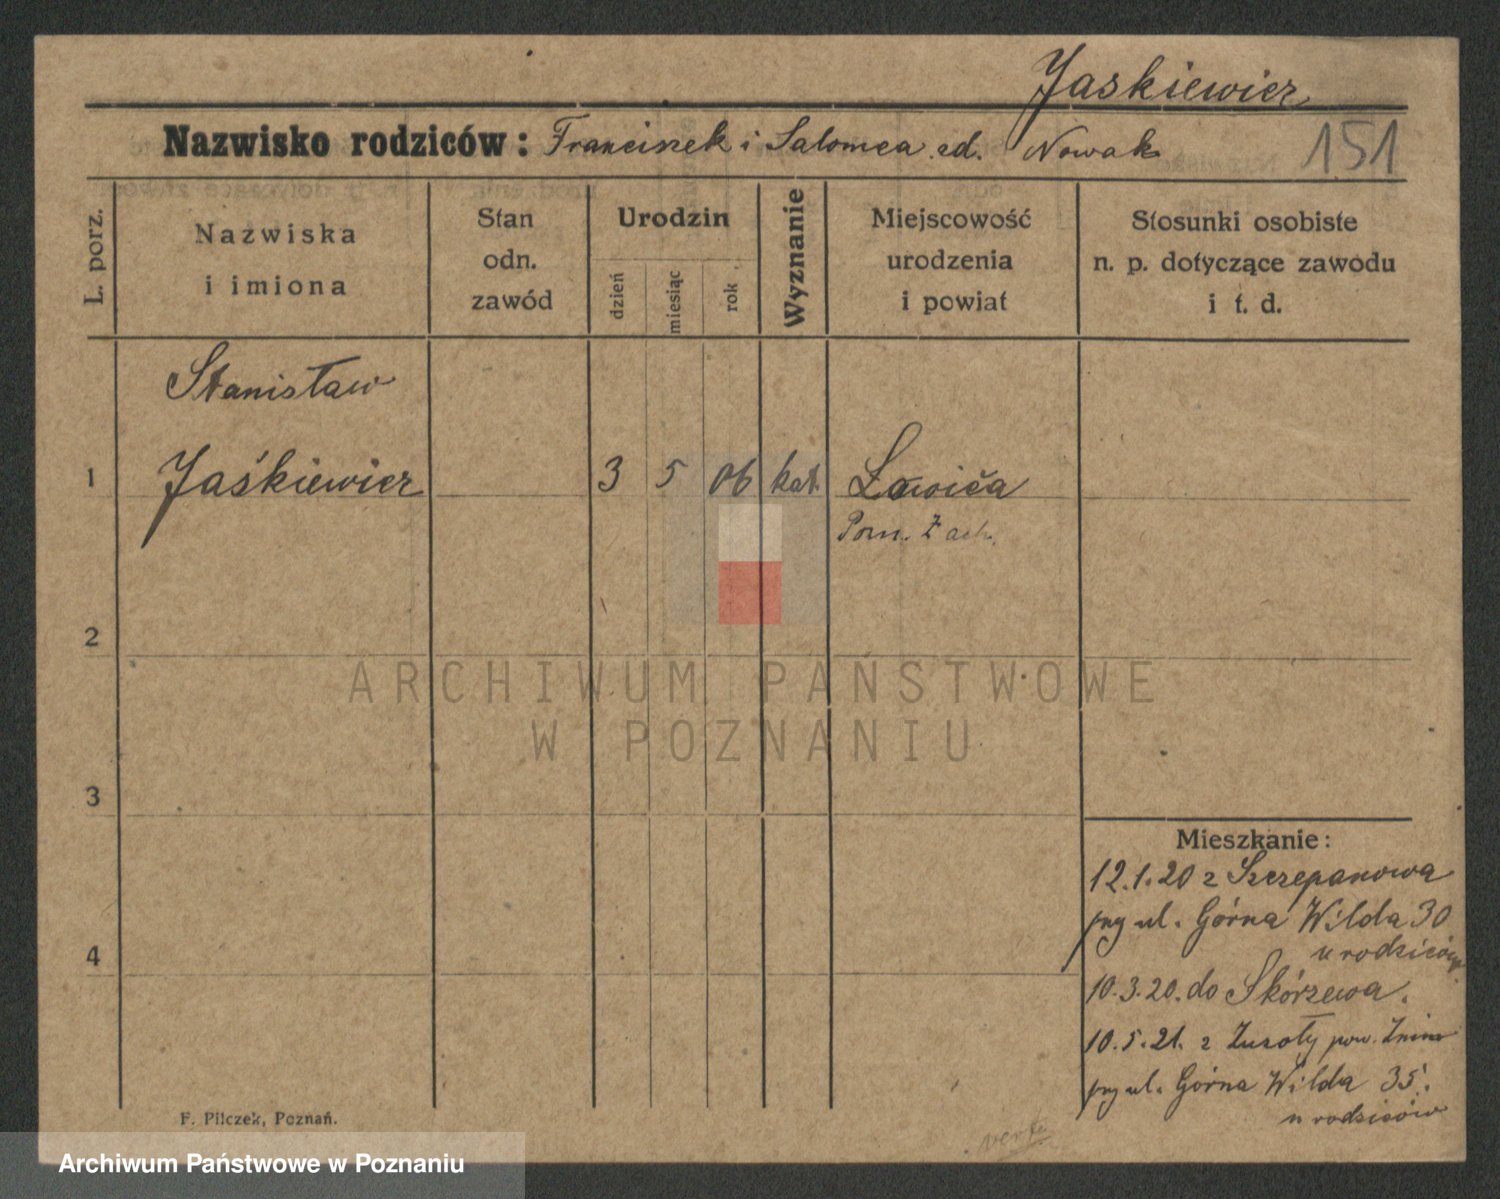 Jaskiewicz
Nazwisko rodziców: Franciszek i Salomea zd. Nowak 151
L. porz.
Nazwiska
i imiona
Stan
odn.
zawód
Urodzin
dzień
miesiąc
rok
Wyznanie
Miejscowość
urodzenia
i powiat
Stosunki osobiste
n. p. dotyczące zawodu
i t. d.
Stanisław
1 Jaśkiewicz 3 5 06 kat. Ławica
Pozn. Zach.
2
3
4
ARCHIWUM PAŃSTWOWE
W POZNANIU
Mieszkanie:
12.1.20 z Szczepanowa
przy ul. Górna Wilda 30
u rodziców
10.3.20. do Skórzewa.
10.5.21. z pow. Żnin
przy ul. Górna Wilda 35.
u rodziców
F. Pilczek, Poznań.
verte
Archiwum Państwowe w Poznaniu